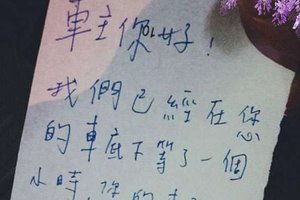 車主你好！
我們已經在您
的車底下等了一個
小時，你的